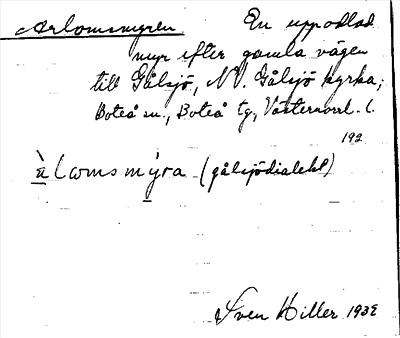 Arlomsmyren En uppodlad
myr efter gamla vägen
till Gålsjö, NV. Gålsjö kyrka;
Boteå sn., Boteå tg, Västernorrl. l.
192
àlomsmýra (gålsjödialekt)
Sven Hiller 1932